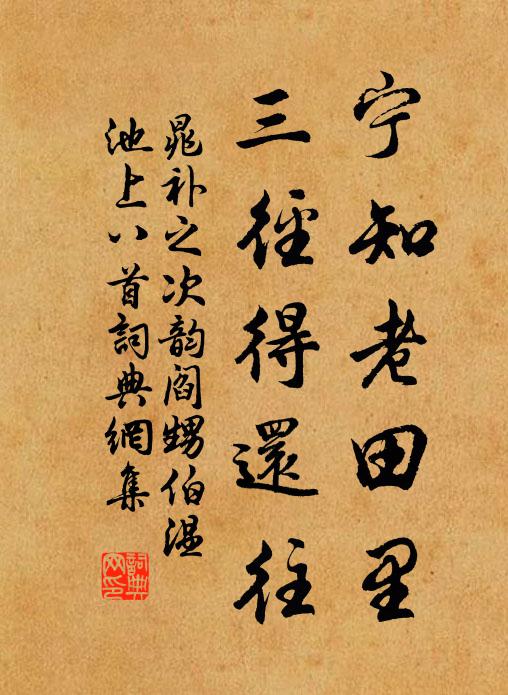 宁知老田里
三徑得還往
晁补之次韵阎甥伯温
池上八首詞典網集
詞典
网印